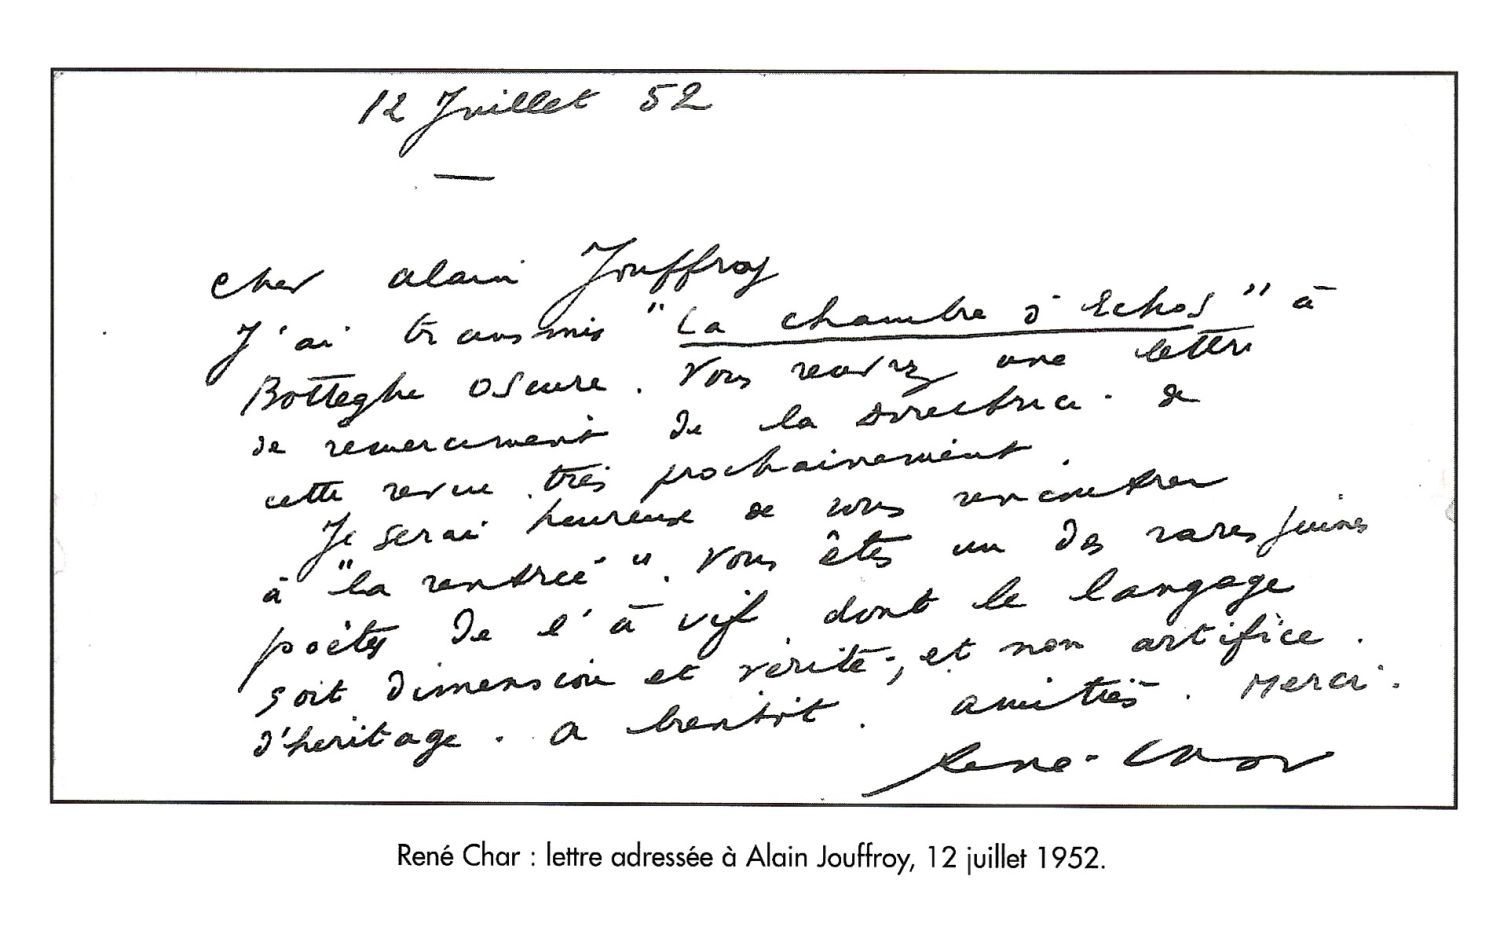 12 Juillet 52
Cher Alain Jouffroy
J'ai transmis "La chambre d'Echos" à
Botteghe Oscure. Vous recevrez une lettre
de remerciement de la Directrice de
cette revue très prochainement.
Je serai heureux de vous rencontrer
à "la rentrée". Vous êtes un des rares jeunes
poètes de l'à vif dont le langage
soit dimension et vérité, et non artifice
d'héritage. A bientôt. Amitiés. Merci.
René Char
René Char : lettre adressée à Alain Jouffroy, 12 juillet 1952.